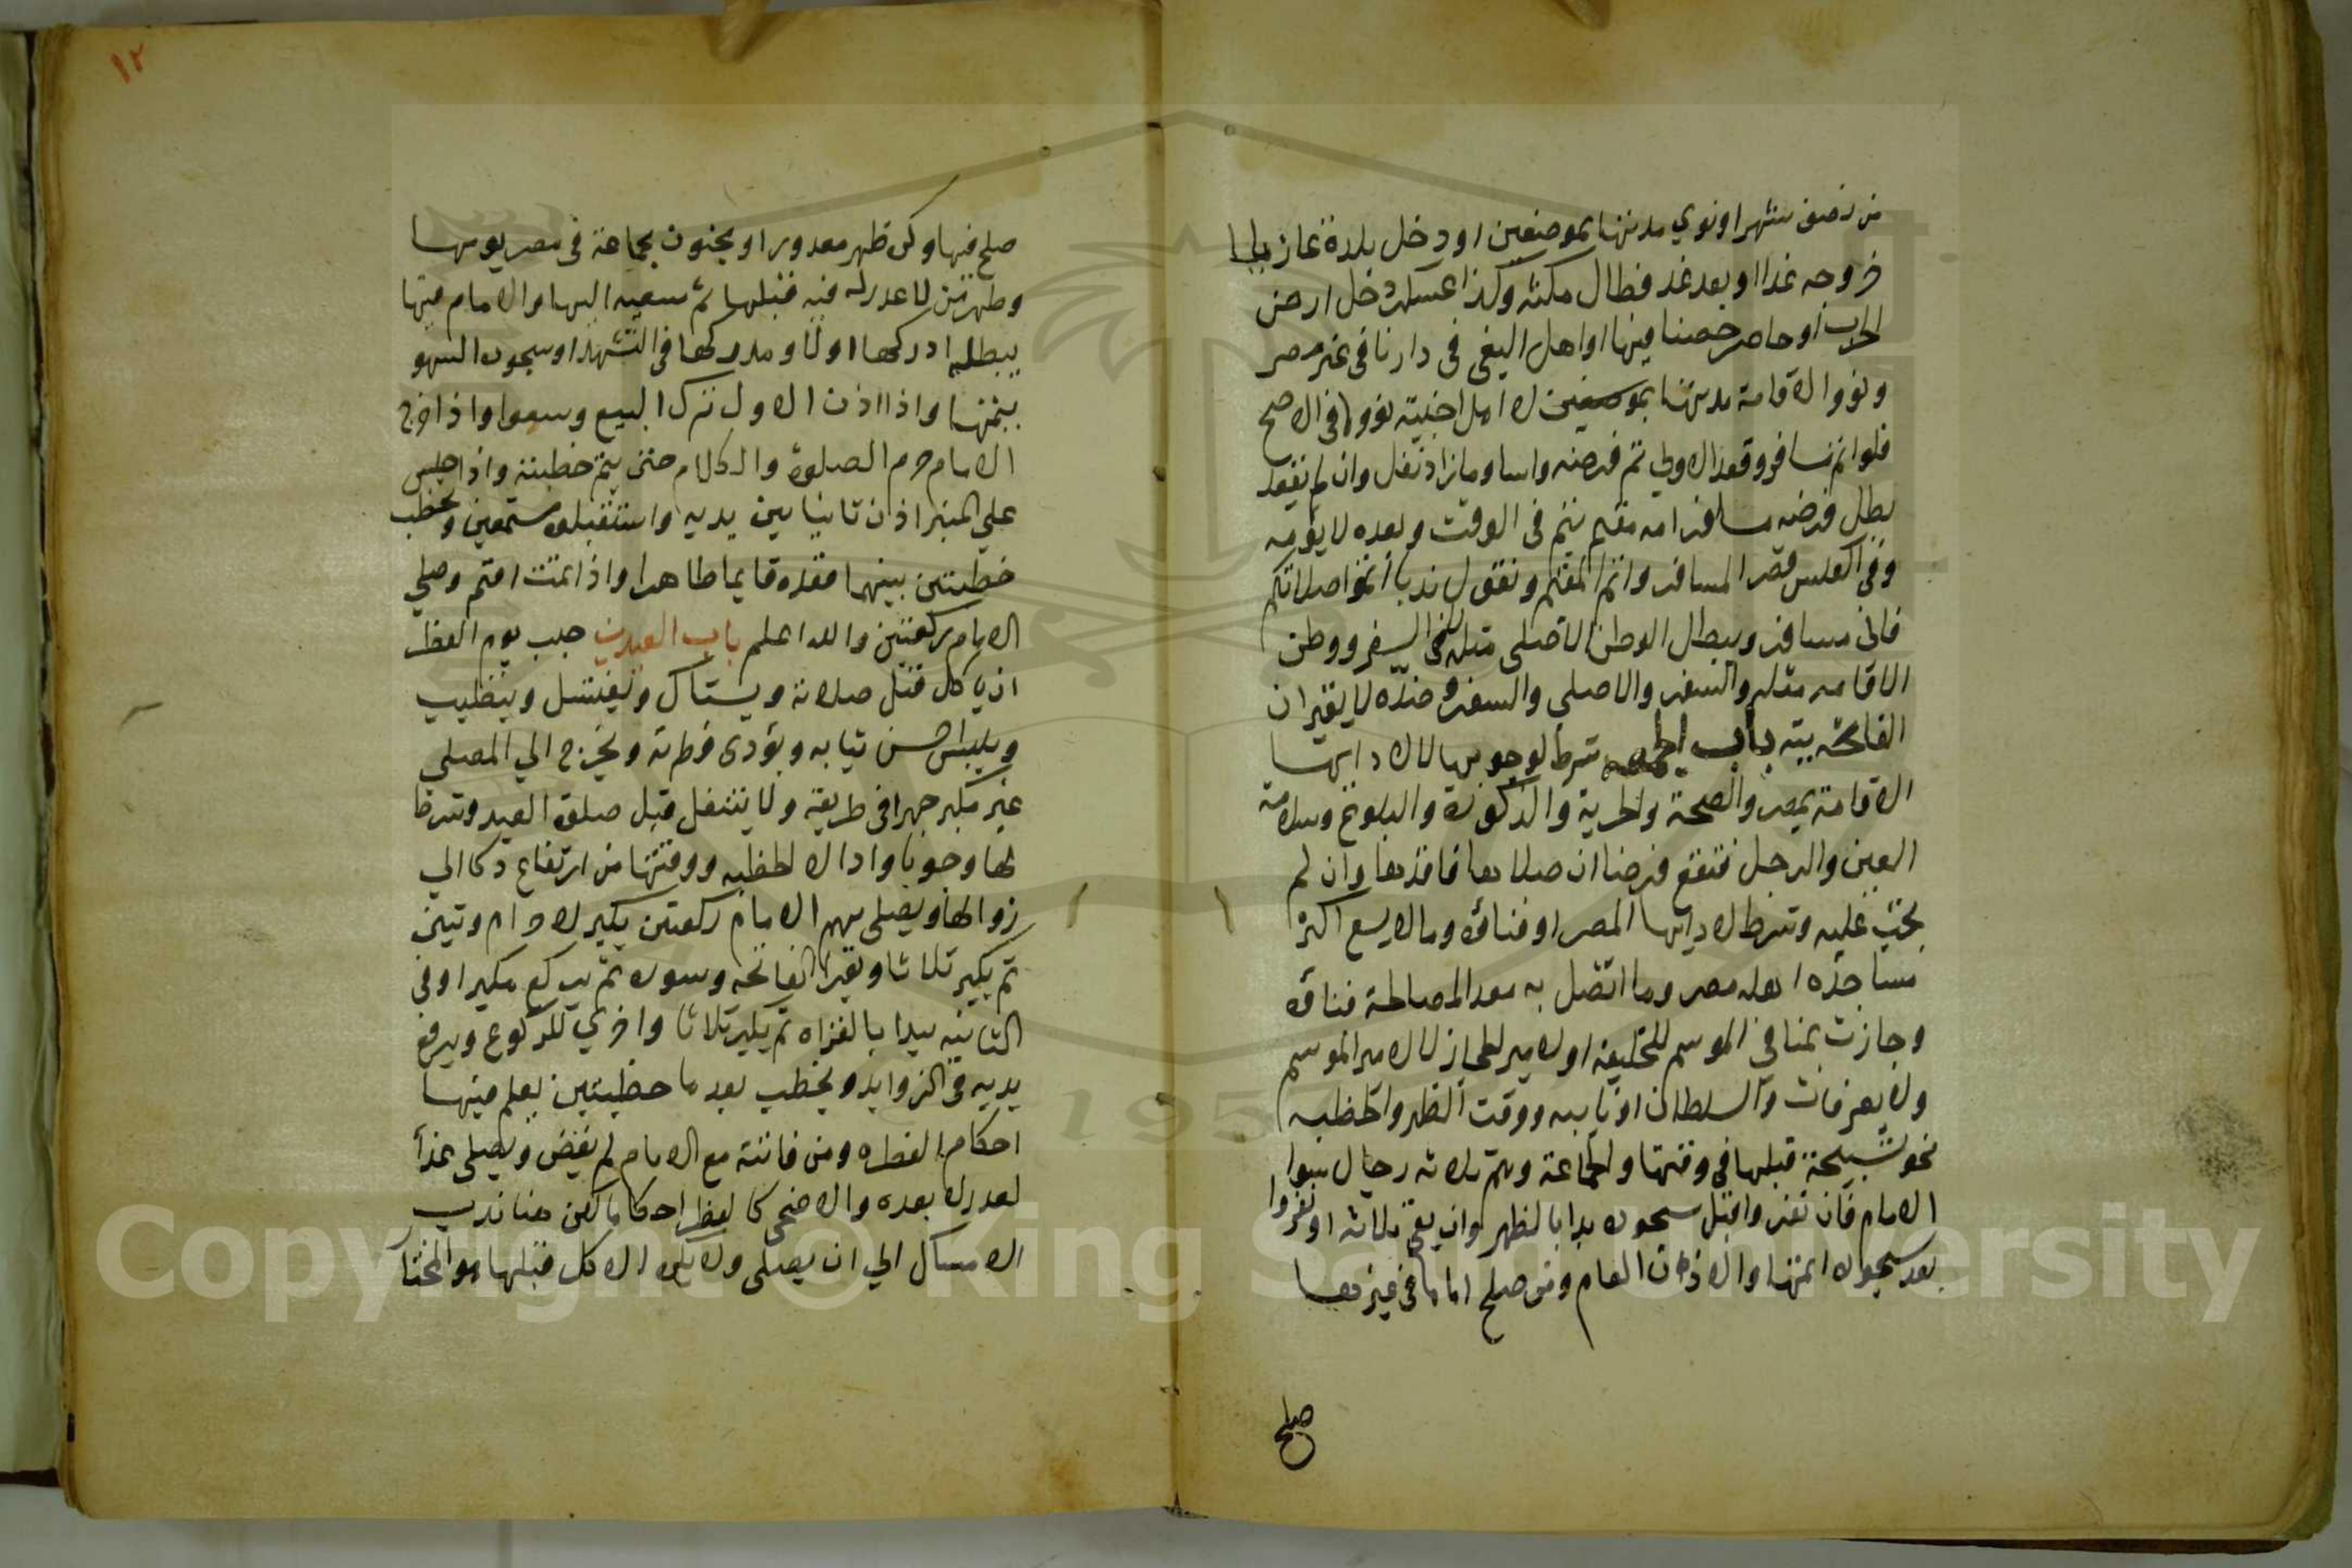 من نصف شهر او نوي مدتها بموضعين او دخل بلدة عازما
خروجه غدا او بعد غد فطال مكثه وكذا عسكر دخل ارض
الحرب او حاصر حصنا فيها او اهل البغي في دارنا في غير مصر
ونووا الاقامة مدتها بموضعين لا اهل اخبية نووا في الاصح
فلو اتم مسافر وقعد الاولي تم فرضه واسا وما زاد نفل وان لم يقعد
بطل فرضه مسافر امه مقيم يتم في الوقت وبعده لا يؤمه
وفي العكس قصر المسافر واتم المقيم ونقول ندبا أتموا صلاتكم
فاني مسافر ويبطل الوطن الاصلي مثله لا السفر ووطن
الاقامه مثله والسفر والاصلي والسفر وضده لا يغيران
الفائته باب الجمعه شرط لوجوبها لا لادايها
الاقامة بمصر والصحة والحرية والذكورة والبلوغ وسلامة
العين والرجل فتقع فرضا ان صلاها فاقدها وان لم
يجب عليه وشرط لادايها المصر او فناؤه وما لا يسع اكبر
مساجده اهله مصر وما اتصل به معد لمصالحه فناؤه
وجازت بمنا في الموسم للخليفة او لامير الحجاز لا لامير الموسم
ولا بعرفات والسلطان او نايبه ووقت الظهر والخطبه
نحو تسبيحة قبلها في وقتها والجماعة وهم ثلاثة رجال سوا
الامام فان نفروا قبل سجوده بدا بالظهر وان بقي ثلاثه او نفروا
بعد سجوده اتمها والاذن العام ومن صلح اماما في غيرها
صلح
١٢
صلح فيها وكره ظهر معذور او مسجون بجماعة في مصر يومها
وظهر من لا عذر له فيه قبلها ثم سعيه اليها والامام فيها
يبطله ادركها اولا ومدركها في التشهد او سجود السهو
يتمها واذا اذن الاول ترك البيع وسعوا واذا خرج
الامام حرم الصلوة والكلام حتي يتم خطبته واذا جلس
علي المنبر اذن ثانيا بين يديه واستقبلوه مستمعين ويخطب
خطبتين بينهما قعدة قايما طاهرا واذا تمت اقيم وصلي
الامام ركعتين والله اعلم باب العيدين حبب يوم الفطر
ان ياكل قبل صلاته ويستاك ويغتسل ويتطيب
ويلبس احسن ثيابه ويؤدي فطرته ويخرج الي المصلي
غير مكبر جهرا في طريقه ولا يتنفل قبل صلوة العيد وشرط
لها وجوبا وادا الا الخطبه ووقتها من ارتفاع ذكا الي
زوالها ويصلي بهم الامام ركعتين يكبر للاحرام ويثني
ثم يكبر ثلاثا ويقرا الفاتحه وسوره ثم يركع مكبرا وفي
الثانيه يبدا بالقراه ثم يكبر ثلاثا واخري للركوع ويرفع
يديه في الزوايد ويخطب بعدها خطبتين يعلم فيها
احكام الفطره ومن فاتته مع الامام لم يقض ويصلي غدا
لعذر لا بعده والاضحي كالفطر احكاما لكن هنا ندب
الامساك الي ان يصلي ولا يكره الاكل قبلها هو المختار
Copyright © King Saud University
195